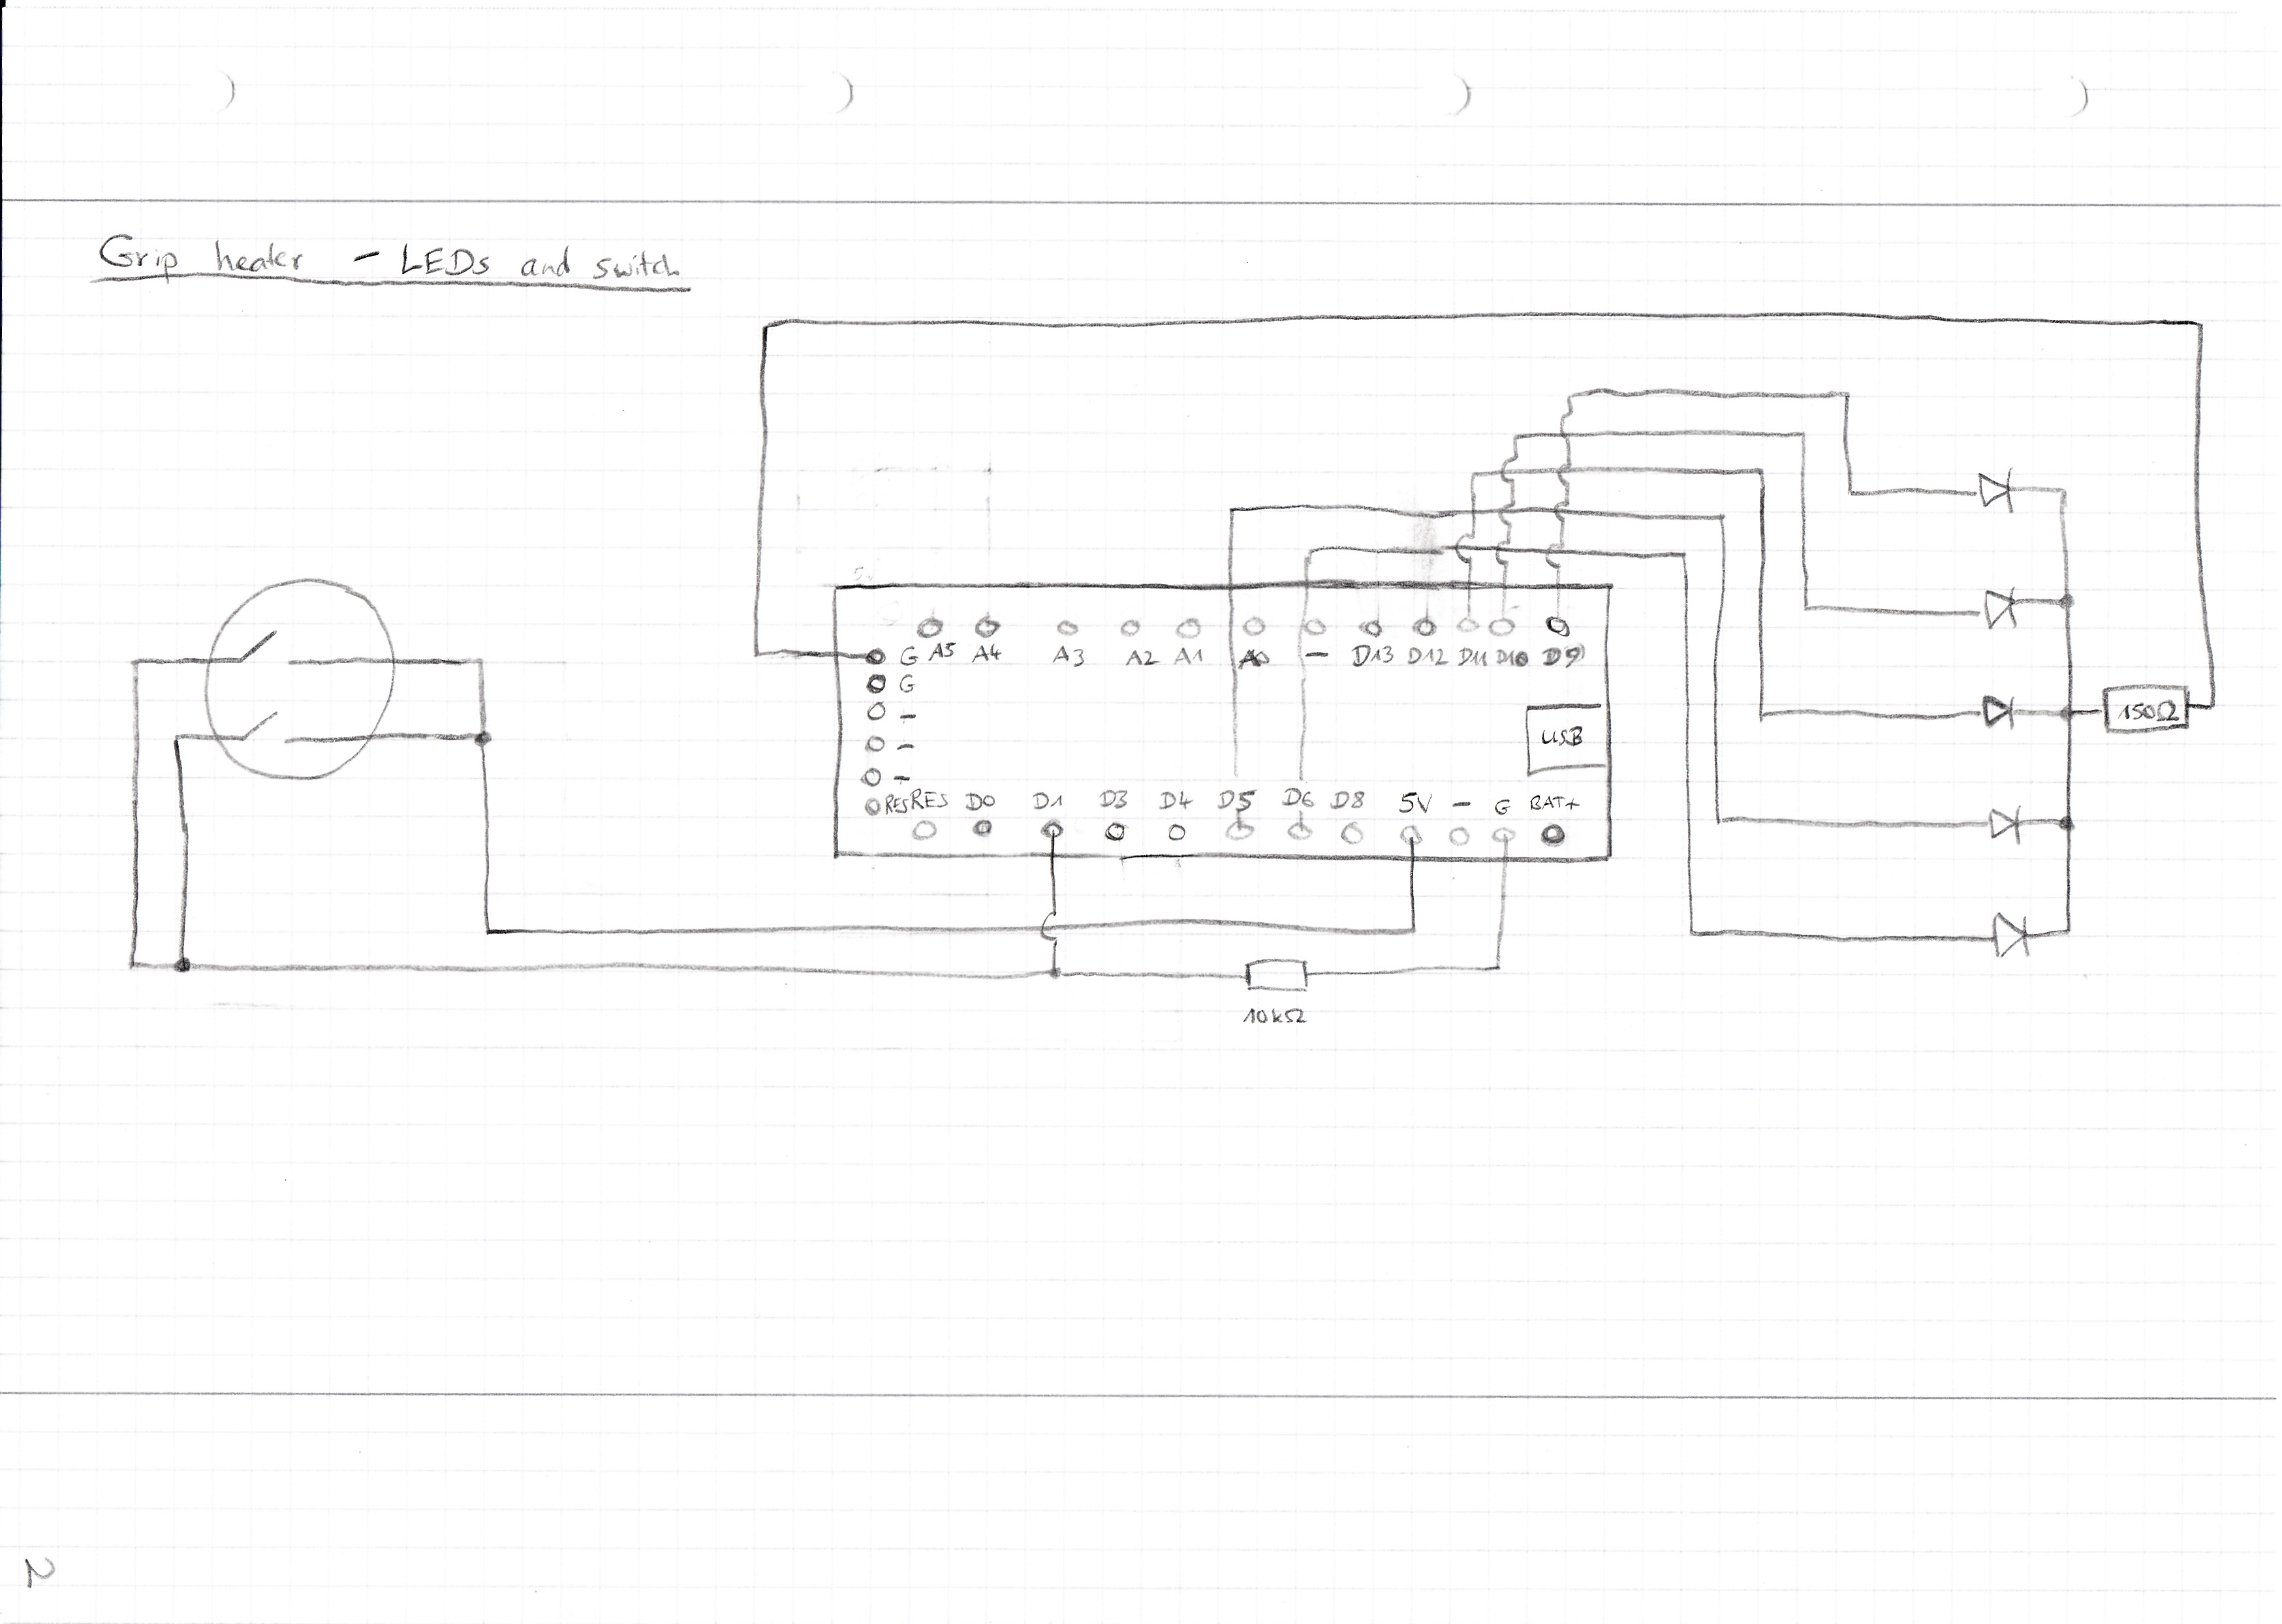 Grip heater - LEDs and switch
G A5 A4 A3 A2 A1 A0 - D13 D12 D11 D10 D9
G
-
-
-
USB
150Ω
RES RES D0 D1 D3 D4 D5 D6 D8 5V - G BAT+
10kΩ
2